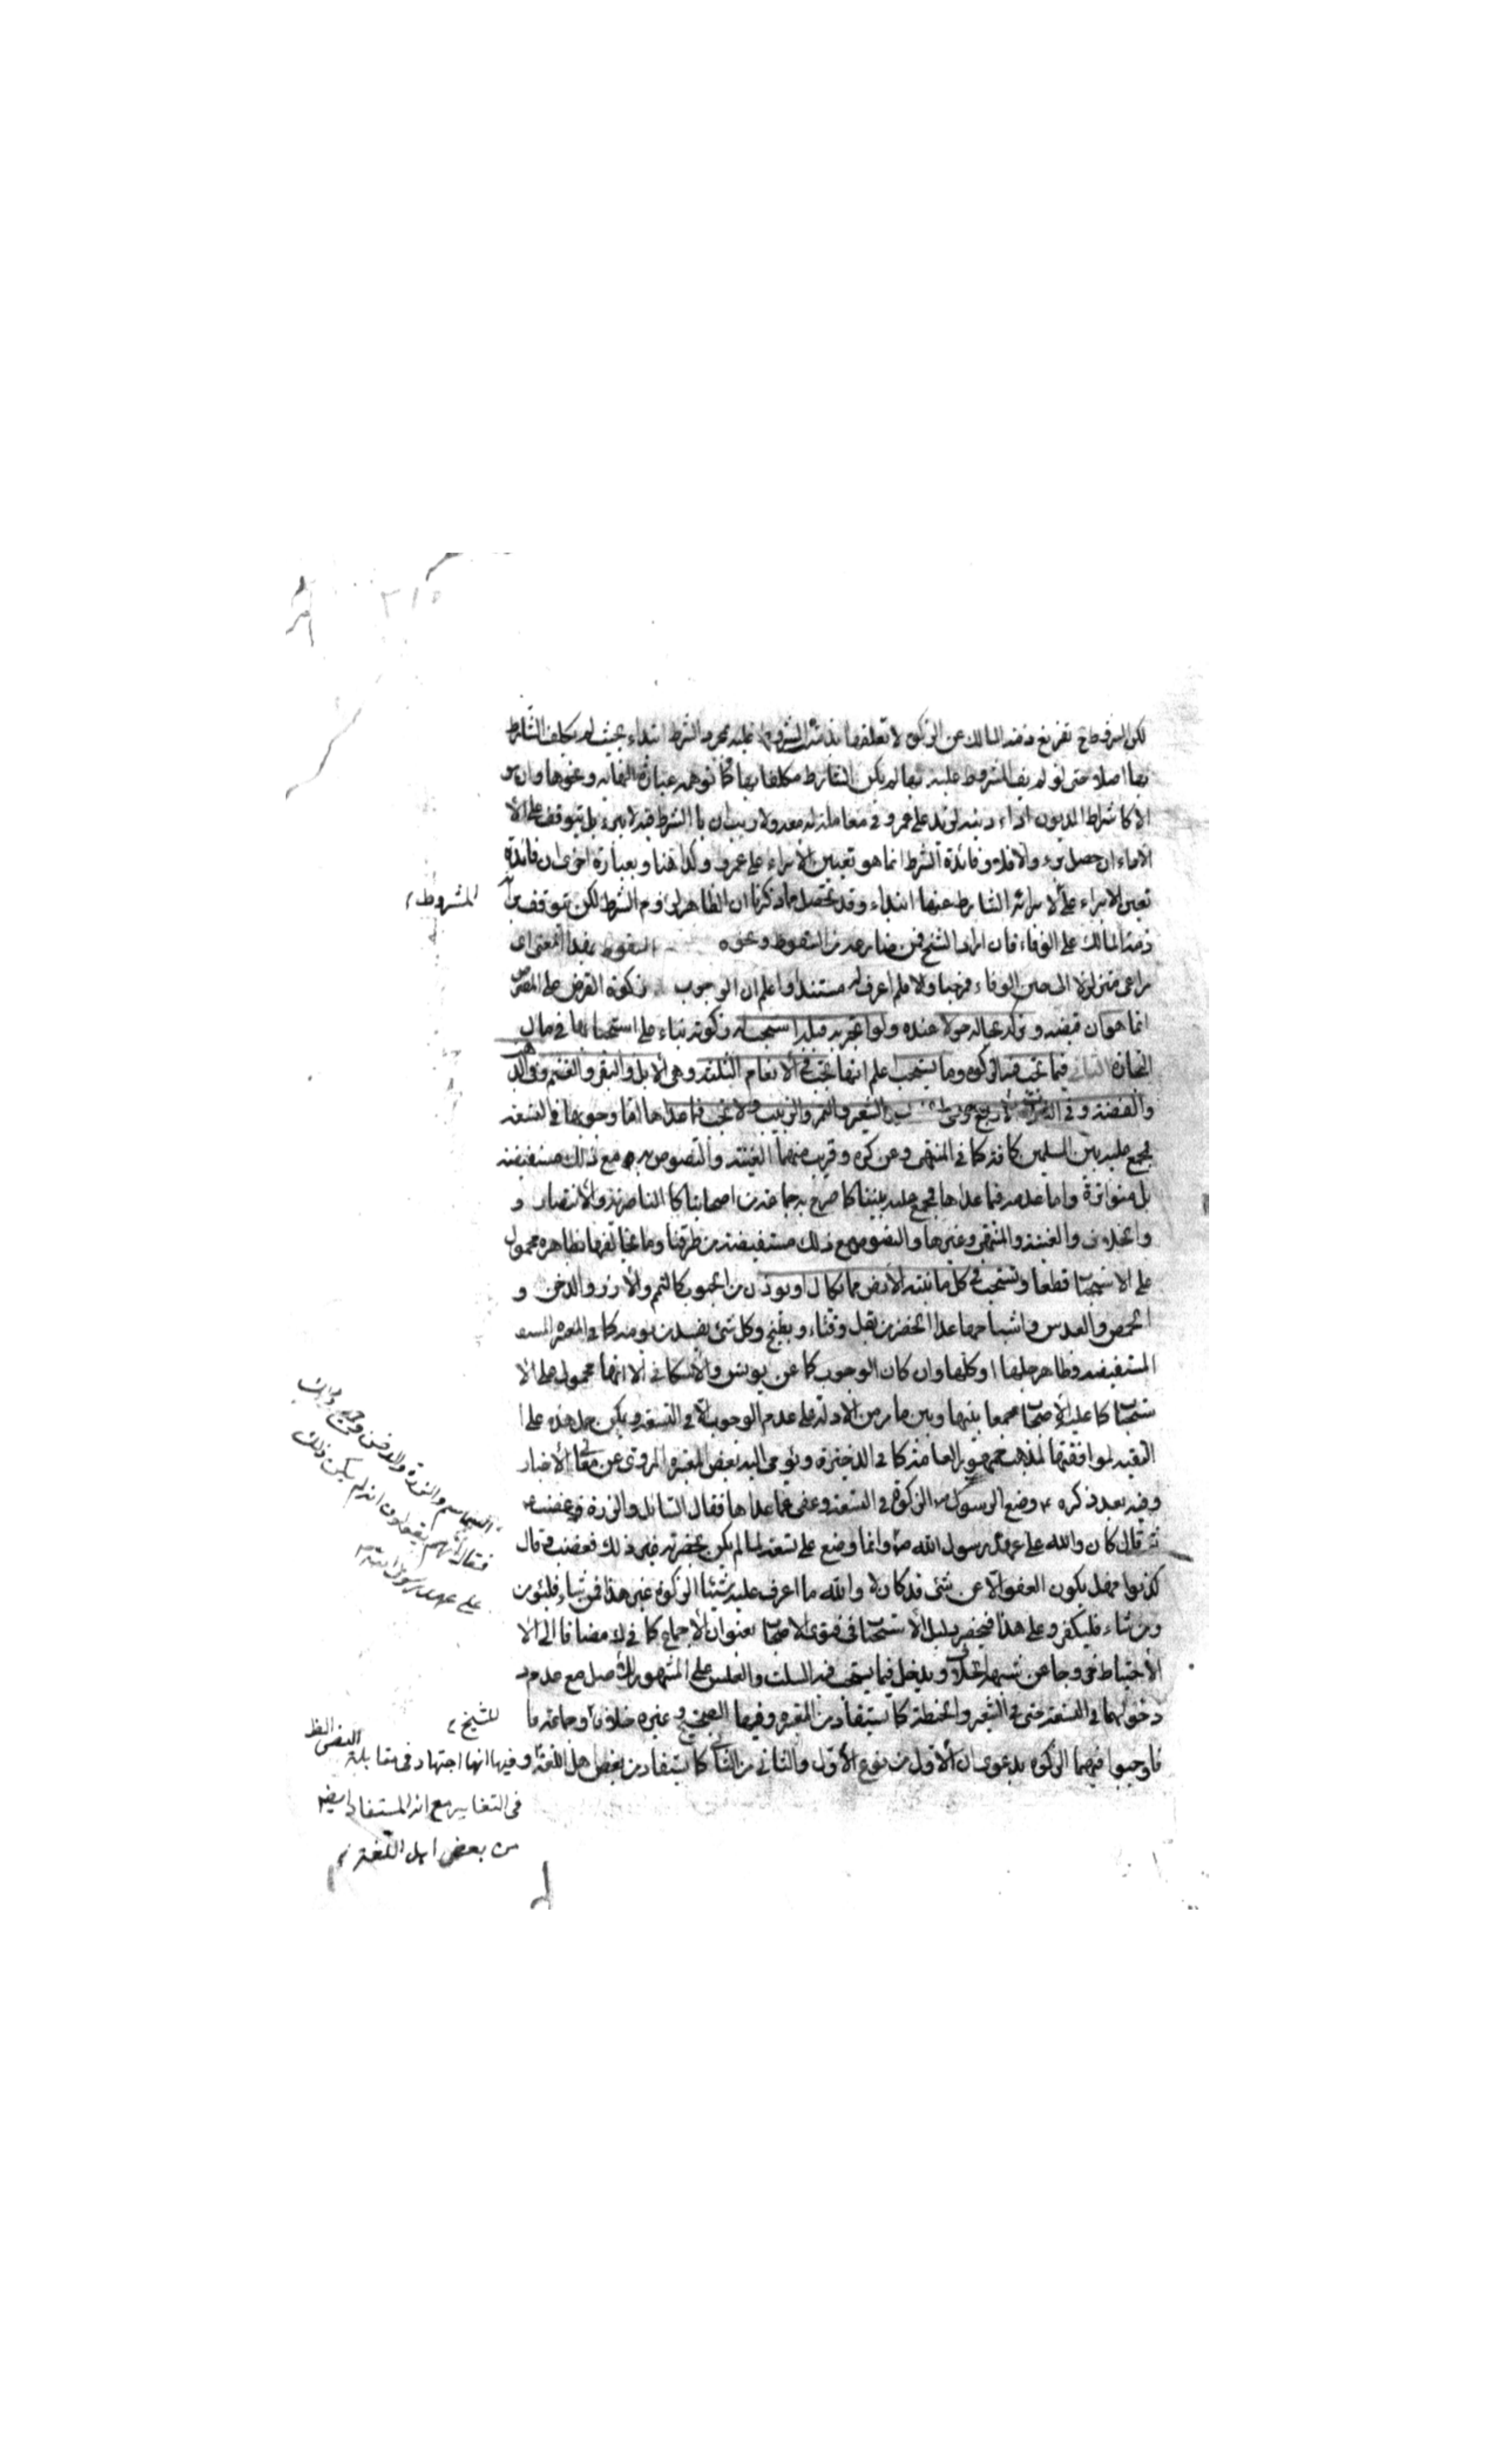 ٣١٥
لكن المراد بها تفريغ ذمة المالك عن الزكوة لا تعلقها بذمة المشروط عليه بمجرد الشرط ابتداء بحيث لم يكلف الشارط
بها اصلا حتى لو لم يف المشروط عليه بها لم يكن الشارط مكلفا بها كما توهمه عبارة النهاية ونحوها وان هو
الا كاشتراط المديون اداء دينه لزيد على عمرو في معاملة له معه ولا ريب ان بالشرط فيه لا يبرء بل يتوقف على الا
الاداء ان حصل برء والا فلا وفائدة الشرط انما هو تعيين الابراء على عمرو وكذا هنا وبعبارة اخرى ان فائدته
تعين الابراء على لا برائة الشارط عنها ابتداء وقد تحصل مما ذكرنا ان الظاهر لزوم الشرط لكن يتوقف برائة
للمشروط
ذمة المالك على الوفاء فان اراد الشيخ فمن ضارعه من السقوط ونحوه السقوط بهذا المعنى اى
مراعى متزلزلا الى حين الوفاء فمرحبا والا فلم اعرف له مستندا واعلم ان الوجوب زكوة القرض على المقترض
انما هو ان قبضه وتركه بحاله حولا عنده ولو اتجر به فيه استحب له زكوته بناء على استحبابها في مال
التجارة الثاني فيما تجب فيه الزكوة وما يستحب اعلم انها تجب في الانعام الثلثة وهي الابل والبقر والغنم وفى الذهب
والفضة وفى الغلات الاربع وهى الشعير والتمر والزبيب ولا تجب فيما عداها اما وجوبها في التسعة
مجمع عليه بين المسلمين كافة كما في المنتهى وعن كره وقريب منهما الغنية والنصوص به مع ذلك مستفيضة
بل متواترة واما عدمه فيما عداها فمجمع عليه بيننا كما صرح به جماعة من اصحابنا كالناصرية والانتصار و
والخلاف والغنية والمنتهى وغيرها والنصوص مع ذلك مستفيضة من طرقنا وما يخالفها بظاهره محمول
على الاستحباب قطعا وتستحب في كل ما تنبته الارض مما يكال او يوزن من الحبوب كالسمسم والارز والدخن و
الحمص والعدس واشباهها عدا الخضر من بقل وقثاء وبطيخ وكل شئ يفسد من يومه كما في المعتبرة المست
المستفيضة وظاهر جلها او كلها وان كان الوجوب كما عن يونس والاسكافي الا انها محمول على الا
ستحباب كما عليه الاصحاب جمعا بينها وبين ما مر من الادلة على عدم الوجوب الا في التسعة ويمكن حمل هذه على ا
التقية لموافقتها لمذهب جمهور العامة كما في الذخيرة ويومى اليه بعض المعتبرة المروى عن معانى الأخبار
وفيه بعد ذكره ع وضع الرسول ص الزكوة في التسعة وعفى عما عداها فقال السائل والذرة فغضب ع
ثم قال كان والله على عهد رسول الله ص وانما وضع على تسعة لما لم يكن بحضرته غير ذلك فغضب وقال
كذبوا فهل يكون العفو الا عن شئ قد كان لا والله ما اعرف عليه شيئا الزكوة غير هذا فمن شاء فليؤمن
ومن شاء فليكفر وعلى هذا فينحصر دليل الاستحباب في فتوى الاصحاب بعنوان الاجماع كما في مضافا الى الا
الاحتياط خروجا عن شبهة الخلاف ويدخل فيما يستحب فيه السلت والعلس على المشهور للاصل مع عدم
دخولهما في التسعة حتى في الشعير والحنطة كما يستفاد من المعتبرة وفيها الصحيح وغيره خلافا وجماعة ما
فاوجبوا فيهما الزكوة بدعوى ان الاول من نوع الاول والثاني من الثاني كما يستفاد من بعض اهل اللغة وفيها انها اجتهاد في مقابلة
النص الظ
في التغاير مع انه المستفاد ايضا
من بعض اهل اللغة
للشيخ
السماسم والذرة والدخن وجميع ذلك
فقال انهم يقولون انه لم يكن ذلك
على عهد رسول الله ص